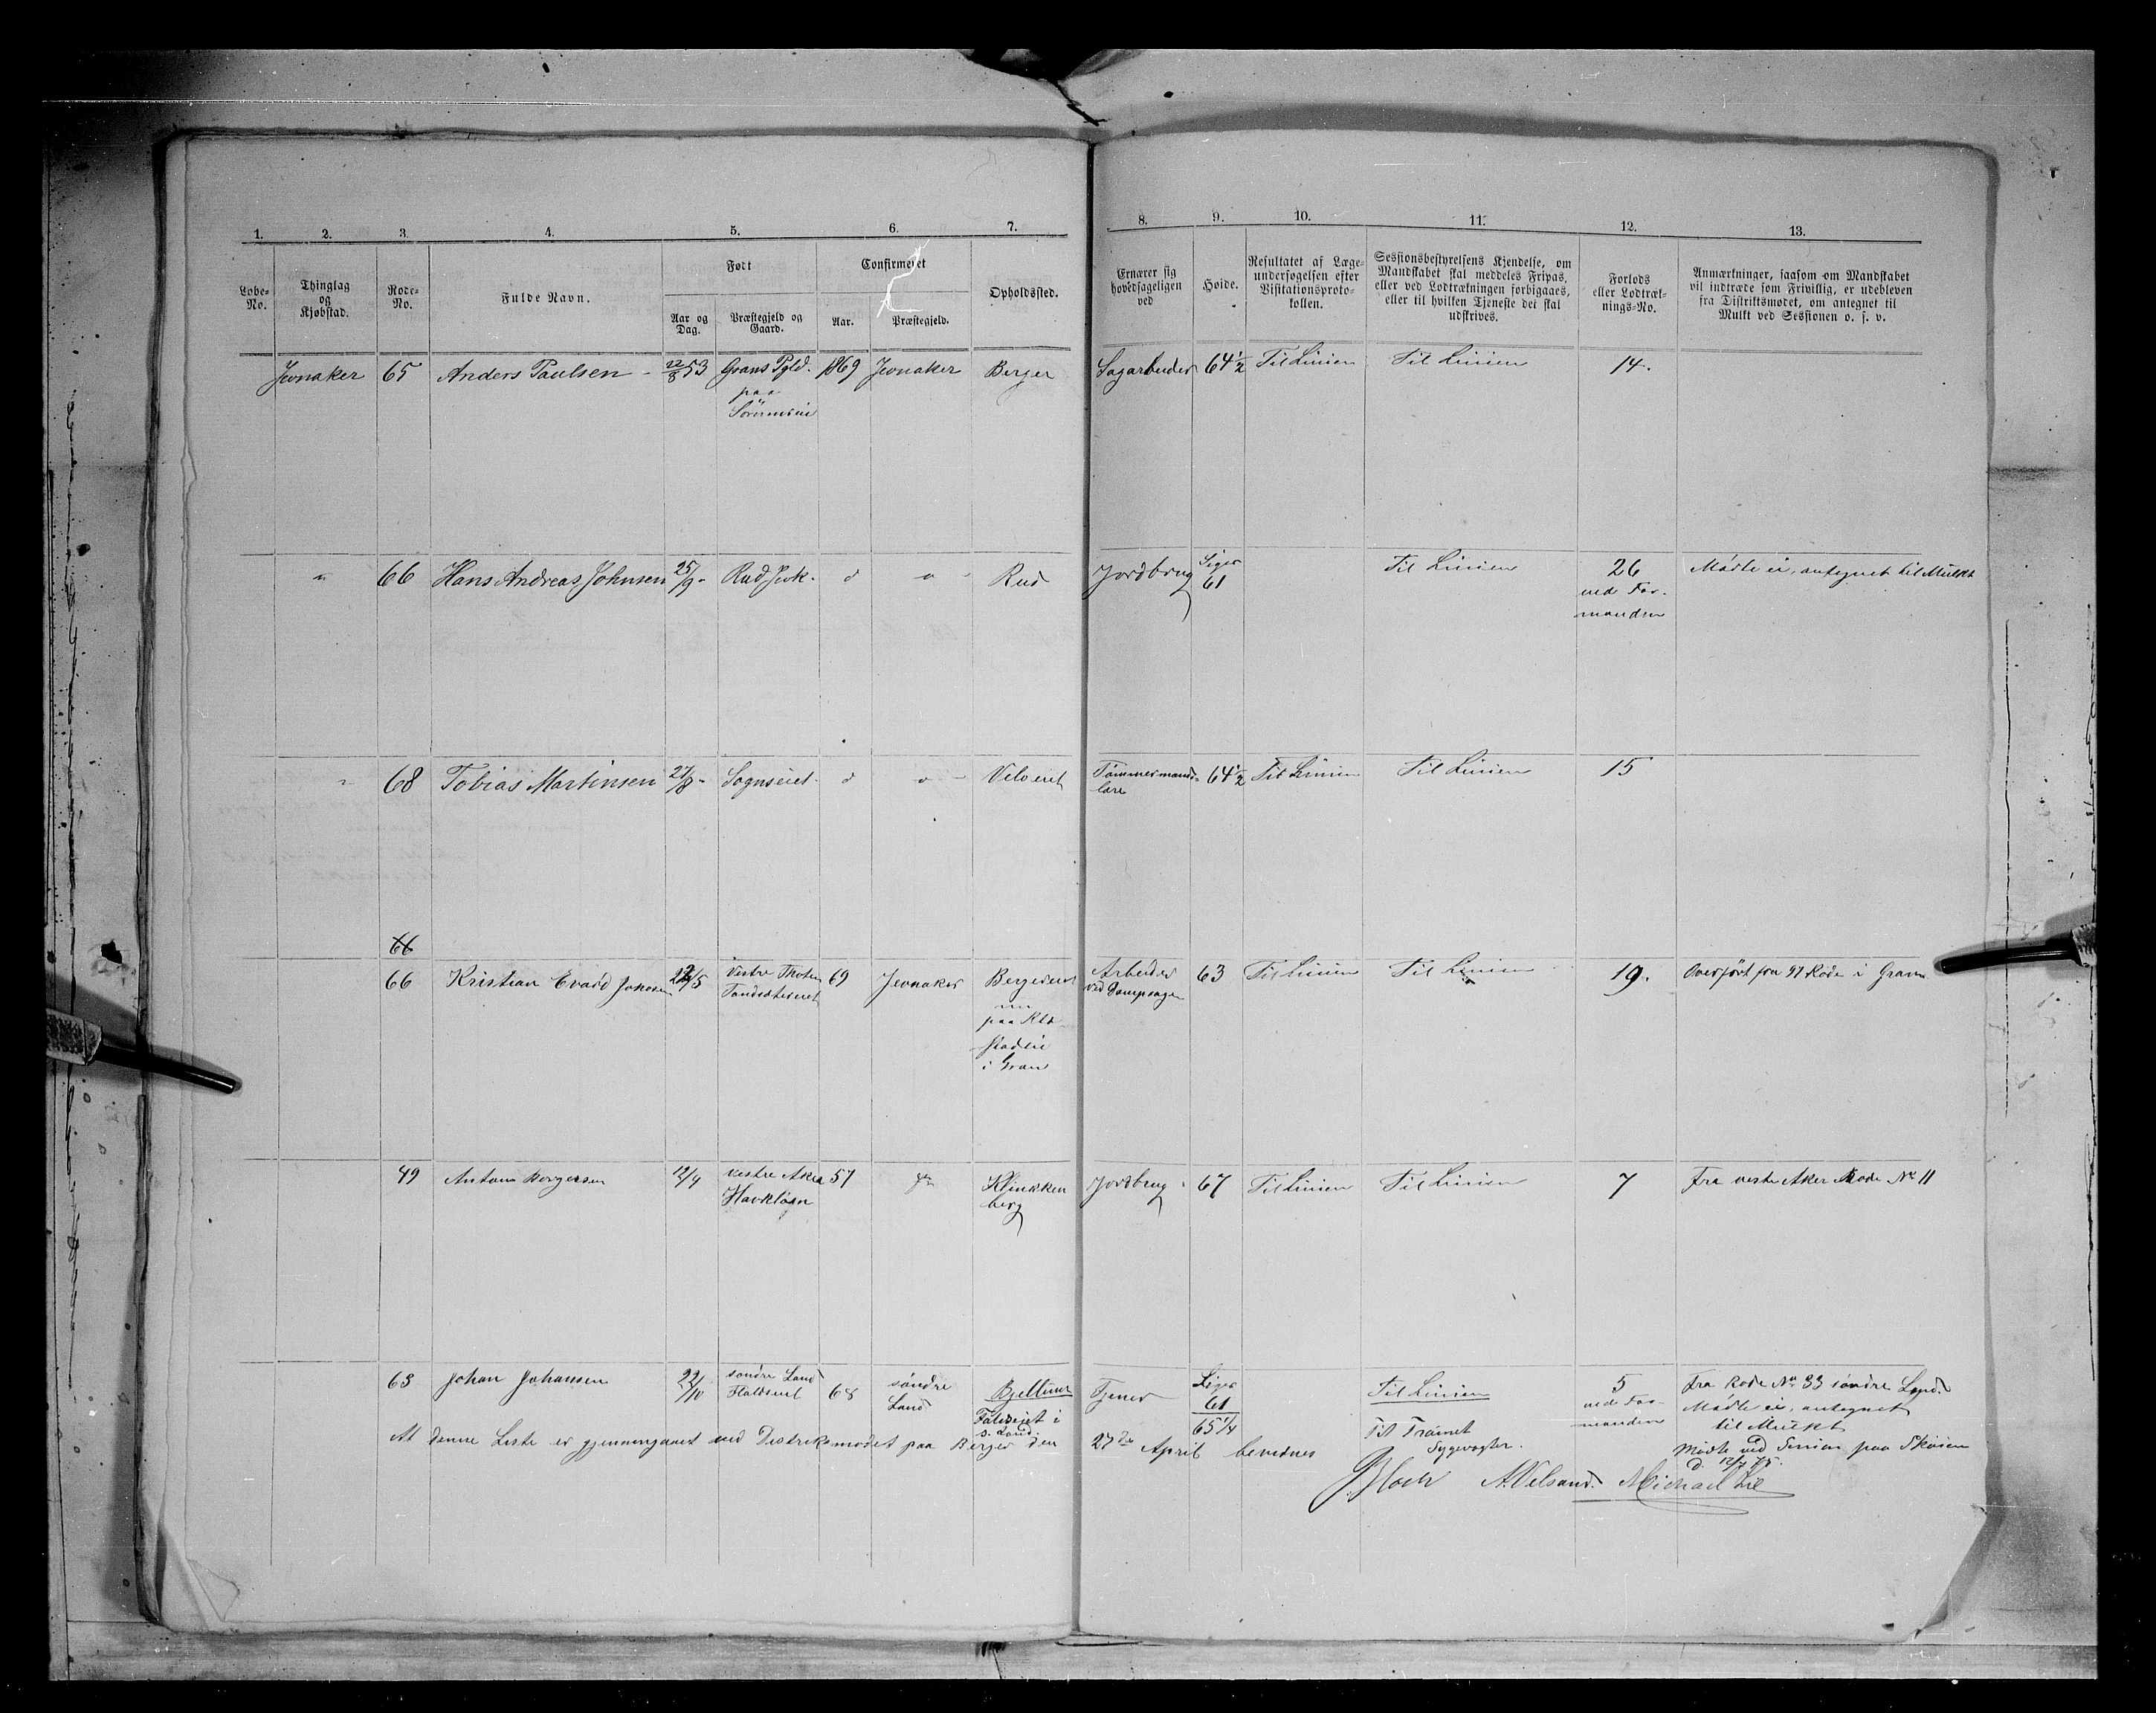 1. 2. 3. 4. 5. 6. 7. 8. 9. 10. 11. 12. 13.
Løbe-No.
Thinglag og Kjøbstad.
Rode-No.
Fulde Navn.
Født
Aar og Dag.
Præstegjeld og Gaard.
Confirmeret
Aar.
Præstegjeld.
Opholdssted.
Ernærer sig hovedsageligen ved
Høide.
Resultatet af Læge-
undersøgelsen efter
Visitationsproto-
kollen.
Sessionsbestyrelsens Kjendelse, om
Mandskabet skal meddeles Fripas,
eller ved Lodtrækningen forbigaaes,
eller til hvilken Tjeneste det skal
udskrives.
Forlods
eller Lodtræk-
nings-No.
Anmærkninger, saasom om Mandskabet
vil indtræde som Frivillig, er udebleven
fra Distriktsmødet, om antegnet til
Mulkt ved Sessionen o. s. v.
Jevnaker 65 Anders Paulsen - 22/8 53 Grans Pgld. 1869 Jevnaker Berger Sagarbeider 64 1/2 Til Linien Til Linien 14.
paa
" 66 Hans Andreas Johnsen 25/9 - Rud Jevk. d o - Rud Jordbrug Siger 61 Til Linien 26 Mødte ei, antegnet til Mulkt
ved For-
manden
" 68 Tobias Martinsen 27/8 - Sognseiet - d o - Velveiet Tømmermands- 64 1/2 Til Linien Til Linien 15
lære
66
66 Kristian Evard 5 Vestre Thoten 69 Jevnaker Bergereiet Arbeider 63 Til Linien Til Linien 19. Overført fra 97 Rode i Gran
ved Dampsagen
nu
paa
i Gran
49 Anton Borgersen 12/4 Vestre Aker 57 Klinkken Jordbrug 67 Til Linien Til Linien 7 Fra vestre Aker Rode No 11
berg
63 Johan Johansen 22/10 søndre Land 68 søndre Bjellum Tjener Siger Til Linien 5 Fra Rode No 33 søndre Land.
Land 61 ved For- Mødte ei, antegnet
Falkseiet i 65 1/4 Til Trainet manden til Mulkt
S. Land. Sygevogter. Mødte ved Session paa Skøien
d. 12/7 75.
At denne Liste er gjennemgaaet ved Distriktsmødet paa Berger den 27de April bevidnes
Bloch A. Velsand. Michael Lie